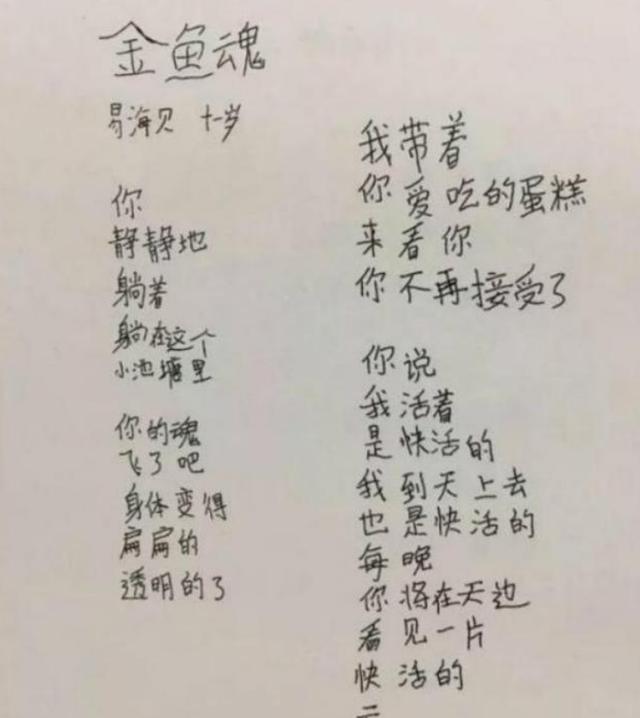 金鱼魂
易海贝 十一岁
你
静静地
躺着
躺在这个
小池塘里
你的魂
飞了吧
身体变得
扁扁的
透明的了
我带着
你爱吃的蛋糕
来看你
你不再接受了
你说
我活着
是快活的
我到天上去
也是快活的
每晚
你将在天边
看见一片
快活的